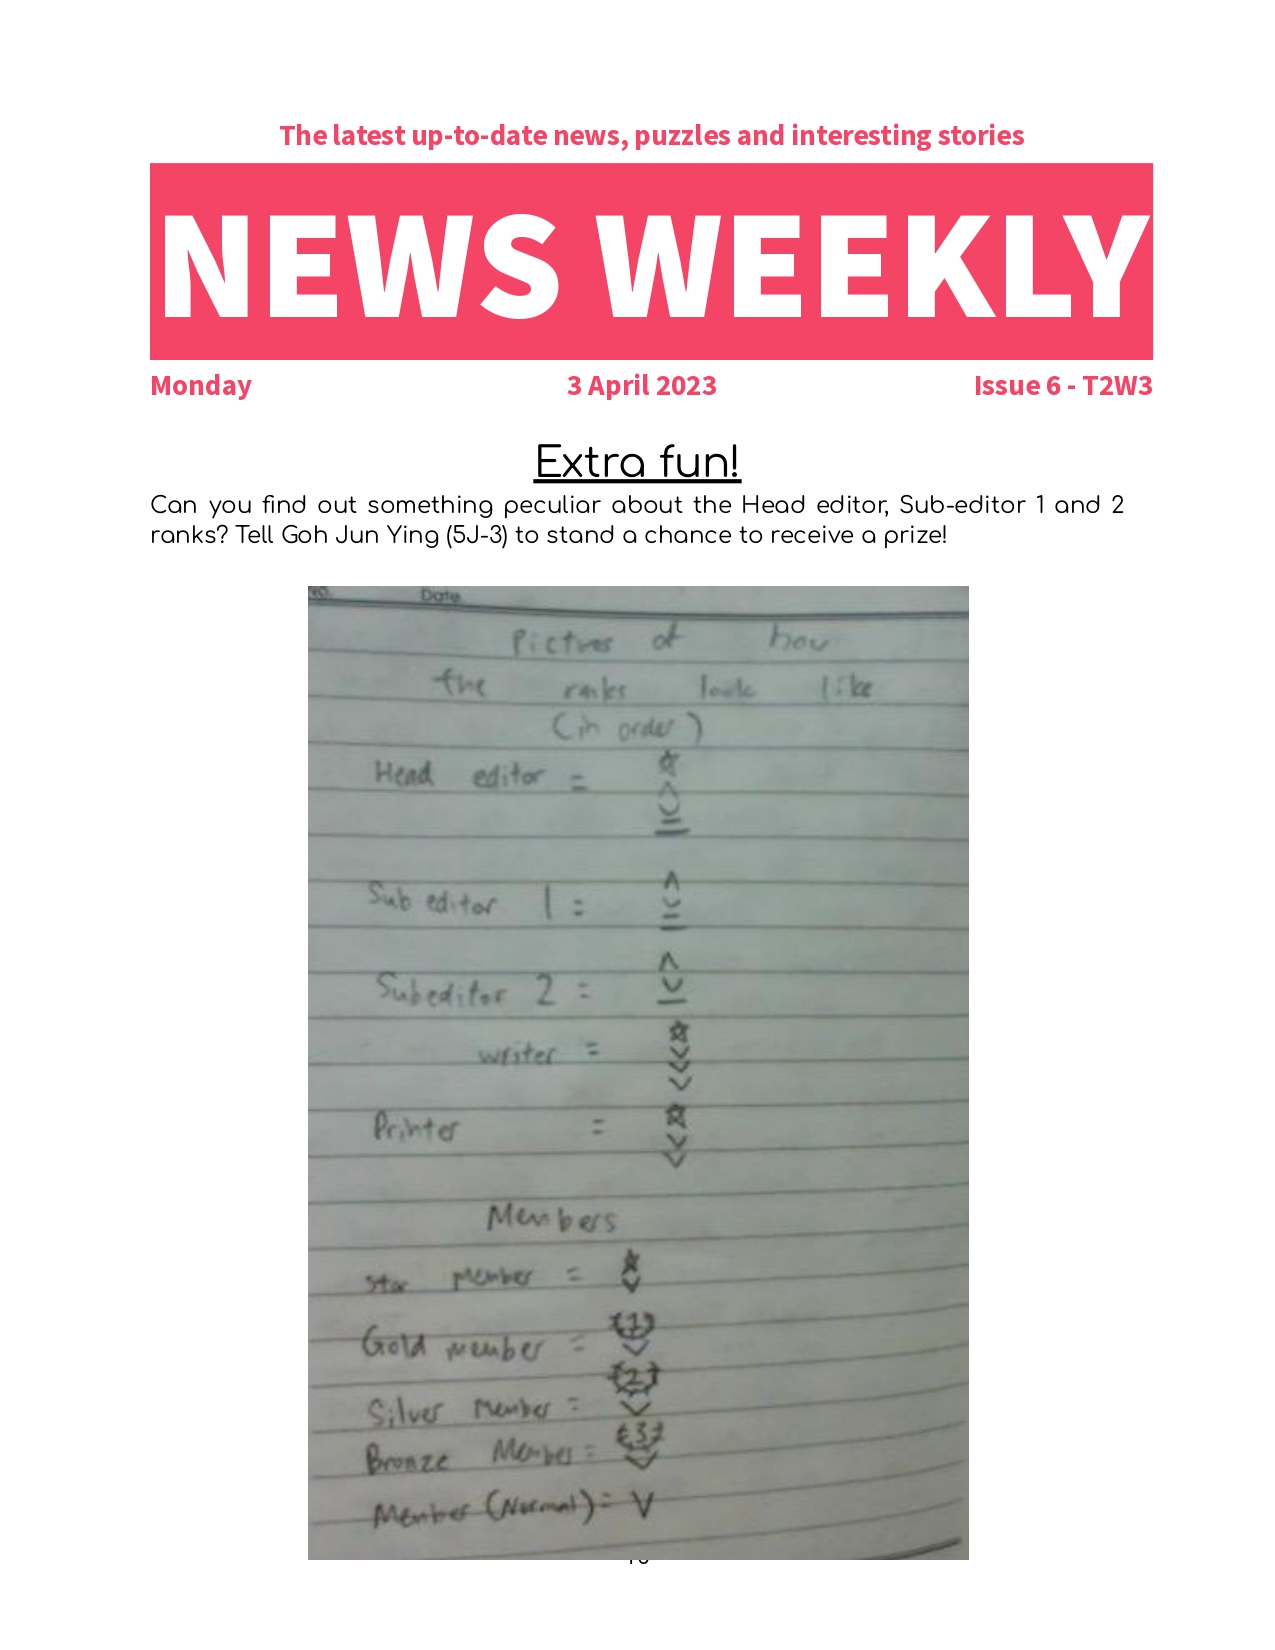 The latest up-to-date news, puzzles and interesting stories
NEWS WEEKLY
Monday 3 April 2023 Issue 6 - T2W3
Extra fun!
Can you find out something peculiar about the Head editor, Sub-editor 1 and 2
ranks? Tell Goh Jun Ying (5J-3) to stand a chance to receive a prize!
No. Date
Pictures of how
the ranks look like
(in order)
Head editor =
Sub editor 1 =
Subeditor 2 =
writer =
Printer =
Members
Star member =
Gold member = {1}
Silver Member = {2}
Bronze Member = {3}
Member (Normal) = V